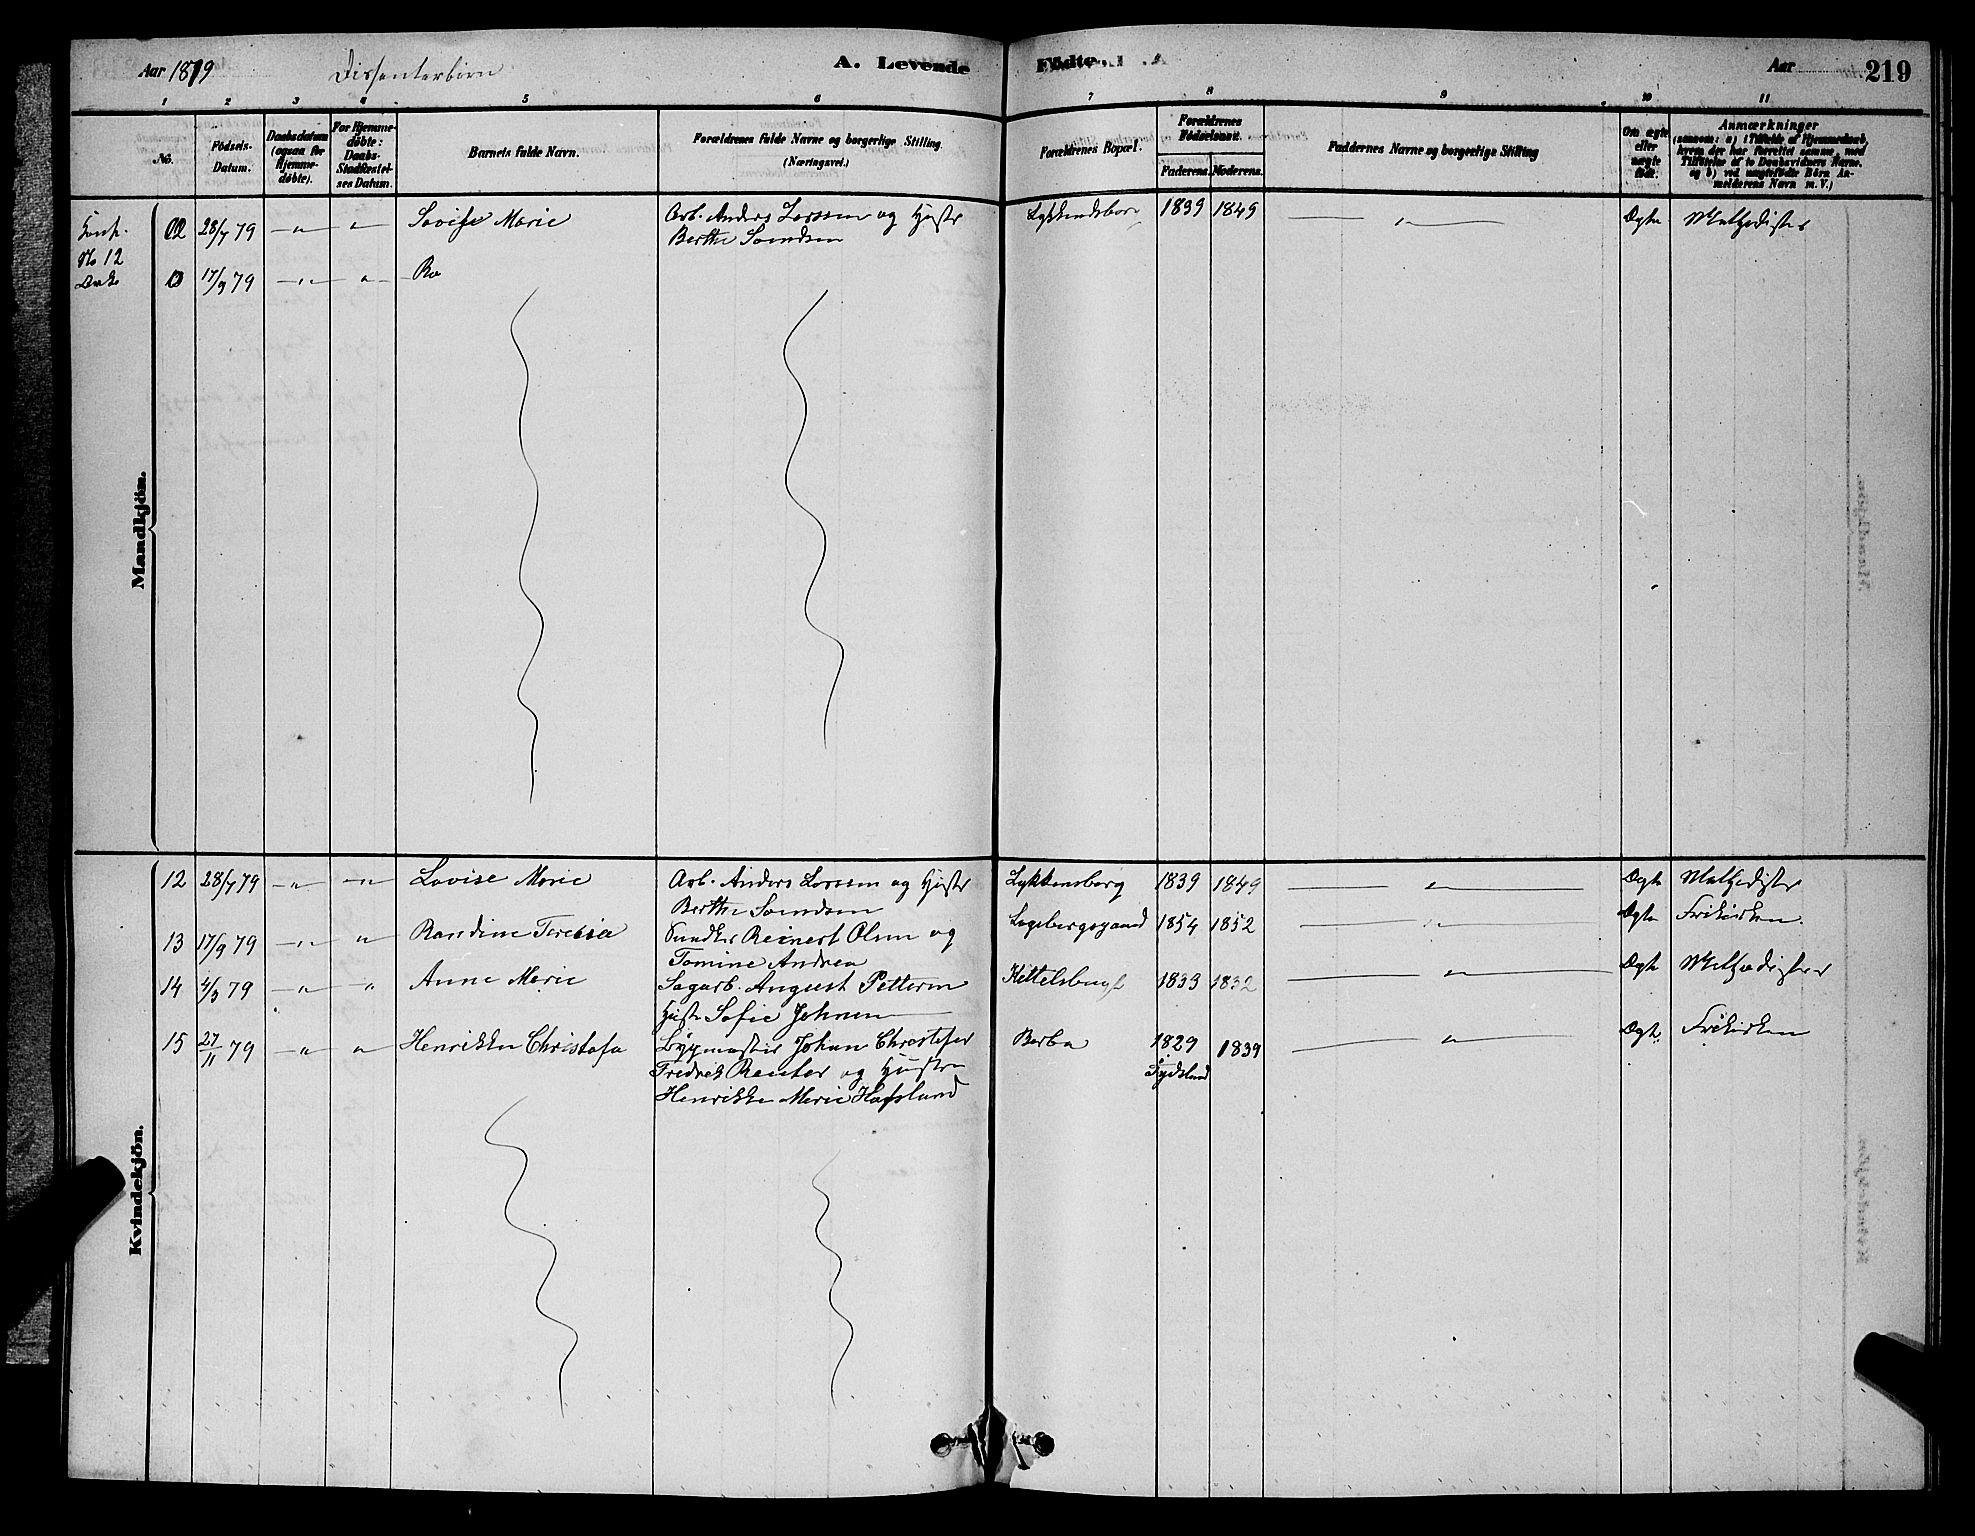 Aar 1879 Dissenterbörn A. Levende Födte. Aar 219
1 2 3 4 5 6 7 8 9 10 11
No. Födsels-Datum. Daabsdatum (ogsaa for Hjemmedöbte). For Hjemmedöbte: Daabs-Stadfæstelses Datum. Barnets fulde Navn. Forældrenes fulde Navne og borgerlige Stilling. (Næringsvei.) Forældrenes Bopæl. Forældrenes Födselsaar. Faderens. Moderens. Faddernes Navne og borgerlige Stilling Om ægte eller uægte födt. Anmærkninger
Mandkjön.
28/7 79 Lovise Marie Arb. Anders Larssen og Hustr 1839 1849 Ægte Methodister
No 12 Berthe
17/9 79 Ra
Kvindekjön.
12 28/7 79 Lovise Marie Arb. Anders Larssen og Hustr Lykkensborg 1839 1849 Ægte Methodister
Berthe
13 17/9 79 Randine Teresia Reinert Olsen og 1854 1852 Ægte Frikirken.
Tomine Andrea
14 4/9 79 Anne Marie Sagarb. August Pettersen 1839 1832 Ægte Methodister
Hustr Sofie Johnsen
15 27/11 79 Henrikke Christofa Bygmester Johan Christofer 1829 1839 Ægte Frikirken
Fredrik Reuter og Hustru Tydskland
Henrikke Marie Hafslund